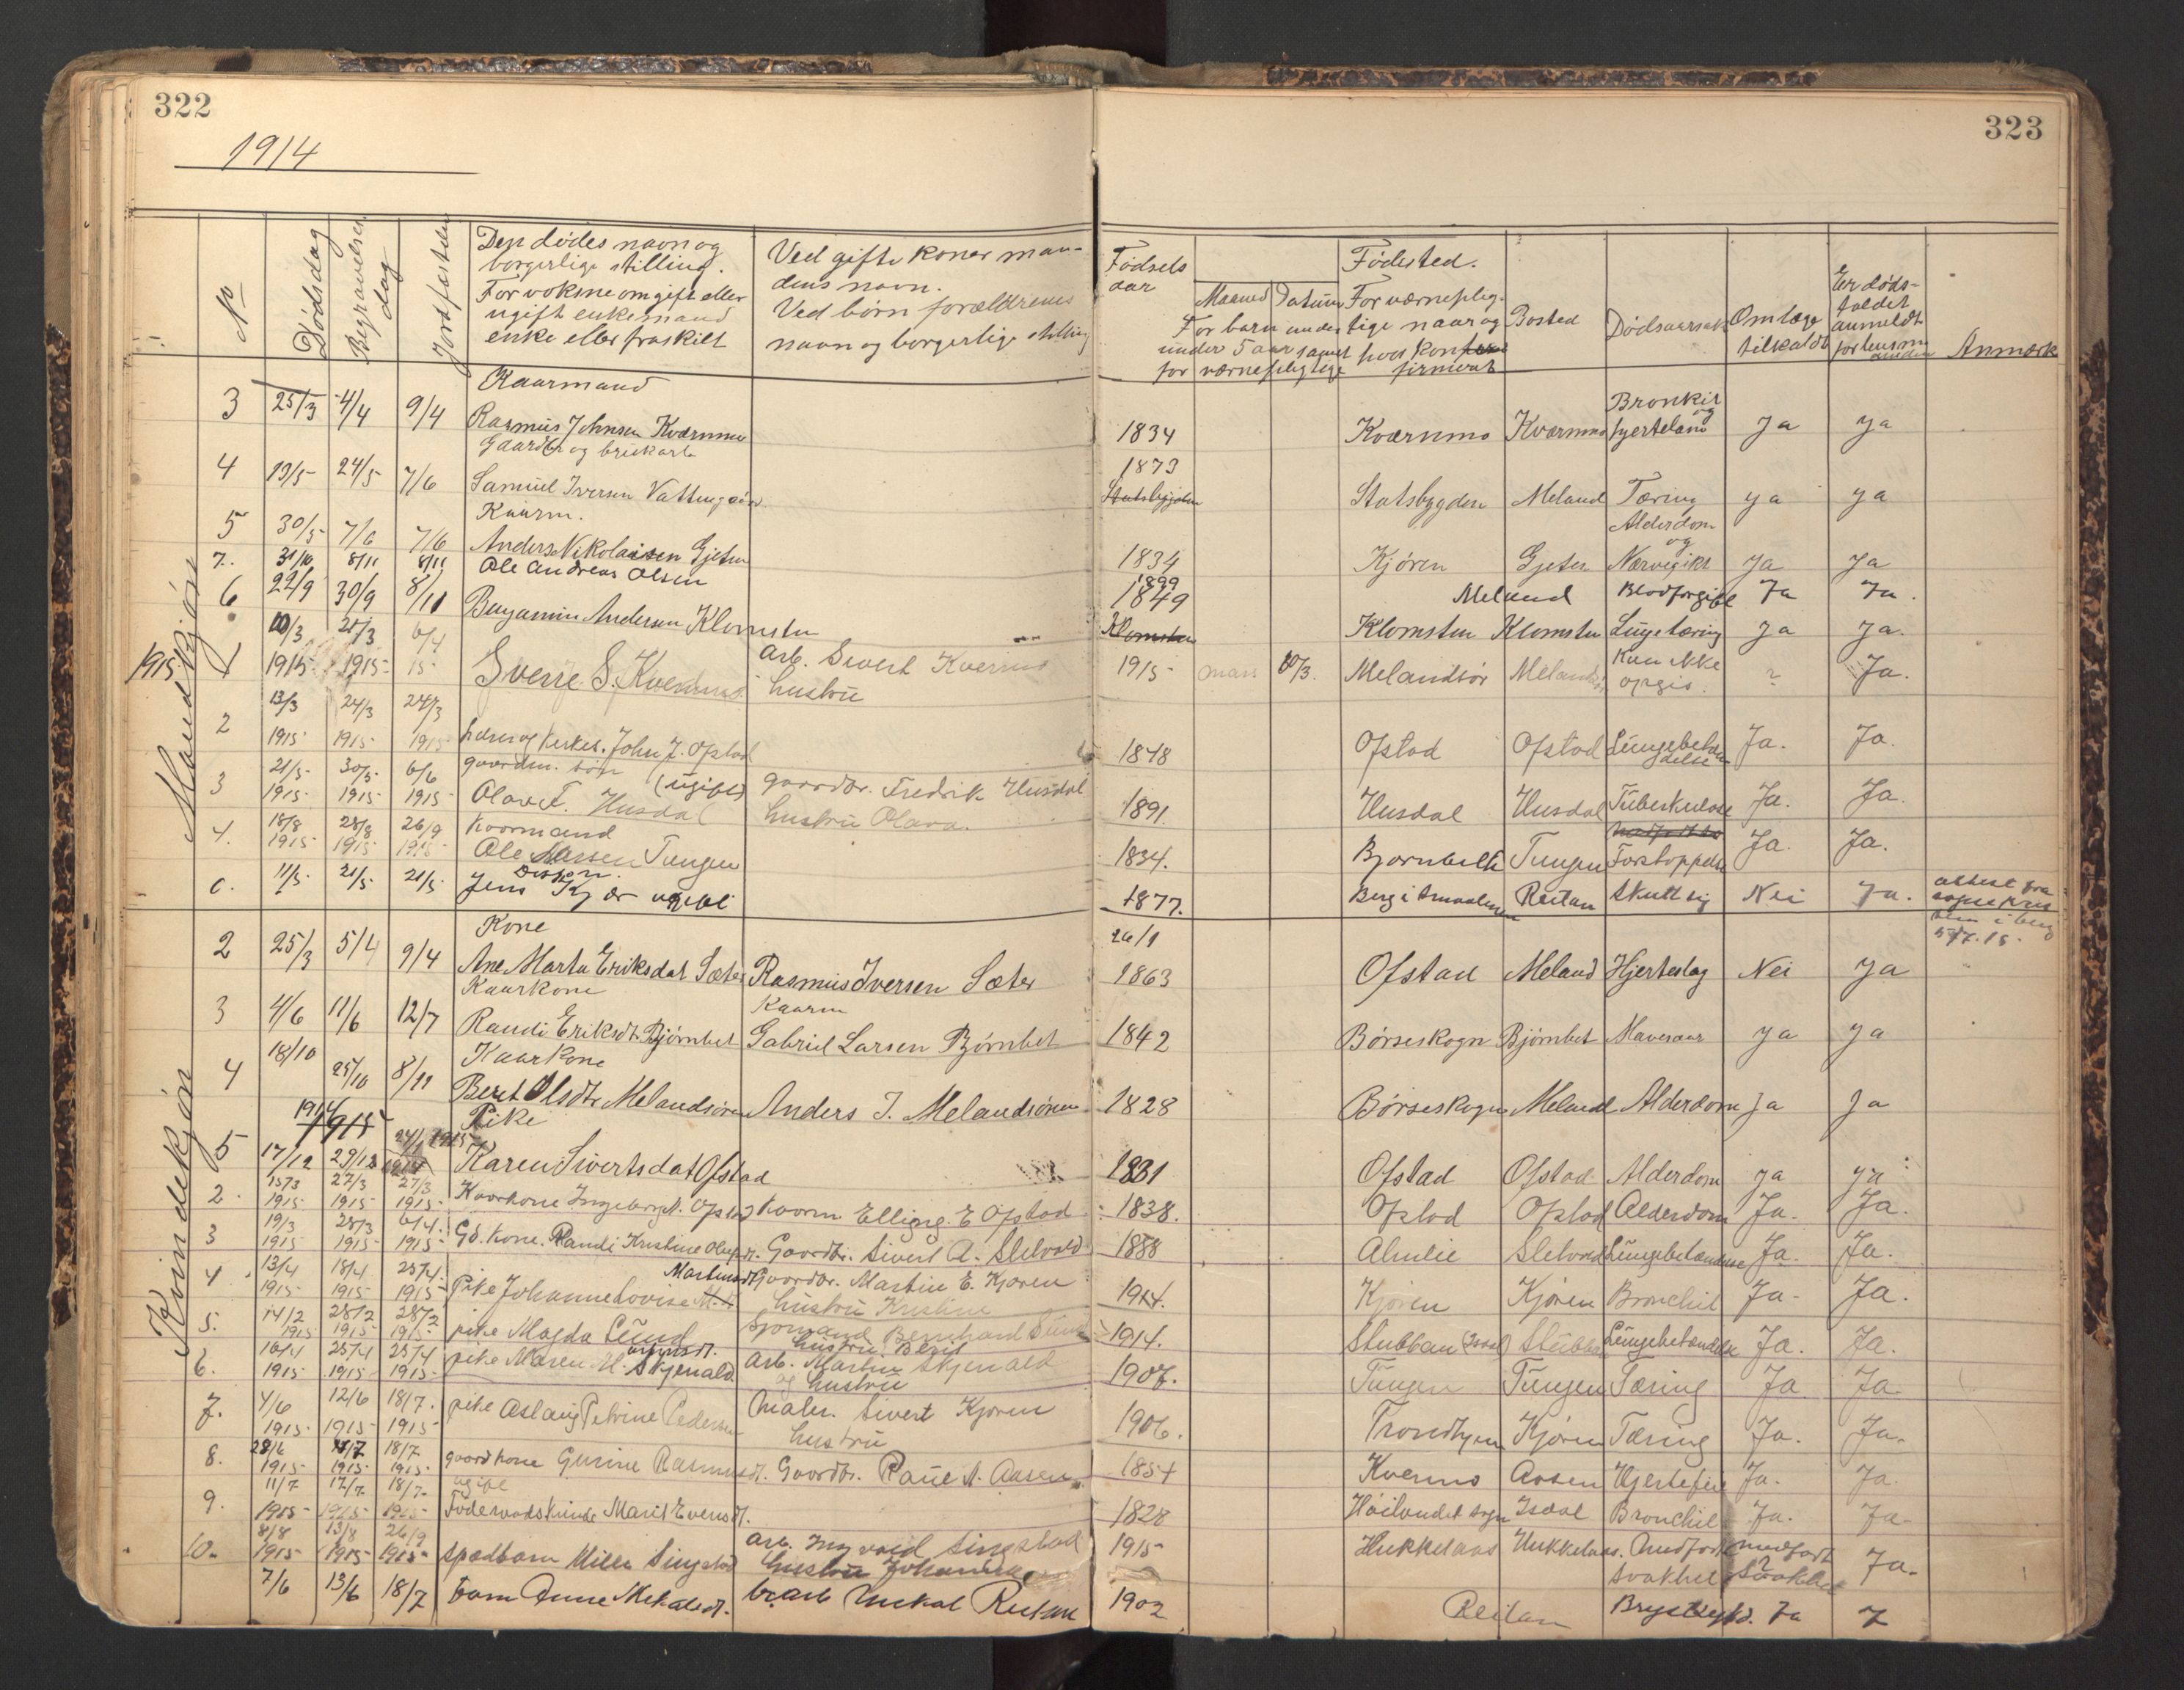 322
323
1914
No
Dødsdag
Begravelses dag
Jordfæstelse
Den dødes navn og
borgerlige stilling.
For voksne om gift eller
ugift enkemand
enke eller fraskilt
Ved gifte koner man-
dens navn.
Ved børn forældrenes
navn og borgerlige stilling
Fødsels
aar
Maaned Datum
For barn
under 5 aar samt
for værnepligtige
Fødested.
For værneplig-
tige naar og
hvor kon
firmert
Bosted
Dødsaarsak
Om læge
tilkaldt
Er døds-
faldet
anmeldt
for lensm
anden
Anmærk
Mandkjøn
Kaarmand
3 25/3 4/4 9/4 Rasmus Johnsen Kværnmo 1834 Kværnmo Kværnmo Bronkit og hjertelam Ja ya
Gaardbr og brukarb
4 13/5 24/5 7/6 Samuel Iversen 1873 Statsbygden Meland Tæring ya ya
Kaarm.
5 30/5 7/6 7/6 Anders Nikolaisen Gjeten 1834 Kjøren Gjeten Alderdom og Ja Ja
7. 31/10 8/11 8/11 Ole Andreas Olsen 1899 Meland Blodforgift Ja Ja.
6 22/9 30/9 8/11 Benjamin Andersen Klomsten 1849 Klomsten Klomsten Lungetæring Ja Ja.
1915
1 10/3 21/3 6/4
1915 1915 15 Sverre S. arb. Sivert 1915 mars 10/3. Melandsør Kan ikke opgis. ? Ja.
hustru
13/3 24/3 24/3
2 1915 1915 1915 John J. Ofstad 1848 Ofstad Ofstad Ja. Ja.
gaardm. søn (ugift)
3 21/5 30/5 6/6
1915 1915 1915 Olav F. Husdal gaardbr. Fredrik Husdal hustru Olava 1891. Husdal Husdal Tuberkulose Ja. Ja.
4. 18/8 28/8 26/9 Kaarmand
1915 1915 1915 Ole Larsen Tungen 1834. Tungen Forstoppelse Ja. Ja.
11/5 21/5 21/5 Jens ugift 1877. Berg i Smaalenene Reitan Skutt sig Nei Ja. attest fra
Kvindekjøn
Kone 26/1
2 25/3 5/4 9/4 Ane Marta Eriksdat Sæter Rasmus Iversen Sæter 1863 Ofstad Meland Hjerteslag Nei ya
Kaarkone Kaarm
3 4/6 11/6 12/7 Randi Eriksdt. Bjørnbet Gabriel Larsen Bjørnbet 1842 Børseskogn Bjørnbet Mavesaar ya ya
Kaarkone
4 18/10 25/10 8/11 Beret Olsdtr Melandsøren Anders J. Melandsøren 1828 Børseskogn Meland Alderdom Ja Ja
1914 Pike
5 17/12 29/12 24/1 1915 Karen Sivertsdat Ofstad 1831 Ofstad Ofstad Alderdom ya ya
2. 15/3 27/3 27/3
1915 1915 1915 Kaarkone Ingeborg A. Ofstad Kaarm Elling E Ofstad 1838. Ofstad Ofstad Alderdom Ja. Ja.
3 19/3 28/3 6/4.
1915 1915 1915 Gd. Kone. Randi Kristine Gaardbr. Sivert A. Sletvold 1888 Almlie Sletvold Lungebetændelse Ja. Ja.
4 13/4 18/4 25/4.
1915 1915 1915 Pike Johanne Lovise Martinsdt Gaardbr. Martin E. Kjøren hustru Kristine 1914. Kjøren Kjøren Bronchit Ja. Ja.
5. 14/2 28/2 28/2
1915 1915 1915 pike Magda Lund Sjømand Bernhard Lund hustru Berit 1914. Stubban Lungebetændelse Ja. Ja.
6. 16/4 25/4 25/4
1915 1915 1915 pike Maren M. Skjenald arb. Martin Skjenald og hustru 1907. Tungen Tungen Tæring Ja Ja.
7. 4/6 12/6 18/7.
1915 1915 1915 pike Aslaug Petrine Pedersen Maler. Sivert Kjøren hustru 1906. Trondhjem Kjøren Tæring Ja. Ja.
8. 28/6 11/7 18/7
1915 1915 1915 gaardkone Gurine Rasmusdt. Gaardbr. Paul A. Aasen 1854 Kvernmo Aasen Hjertefeil Ja. Ja.
9. 11/7 17/7 18/7 ugift
1915 1915 1915 Foderaadskvinde Marit Evensdt. 1828 Høilandet sogn Isdal Bronchit Ja. Ja.
10. 8/8 13/8 26/9
1915 1915 1915 spædbarn Milla Singstad arb. Ingvald Singstad hustru Johanna 1915 Hukkelaas Hukkelaas. Medfødt svakhet Ja.
7/6 13/6 18/7 barn Anne Mekalsdt. br.arb Mekal Reitan 1902 Reitan Brystsyk. Ja